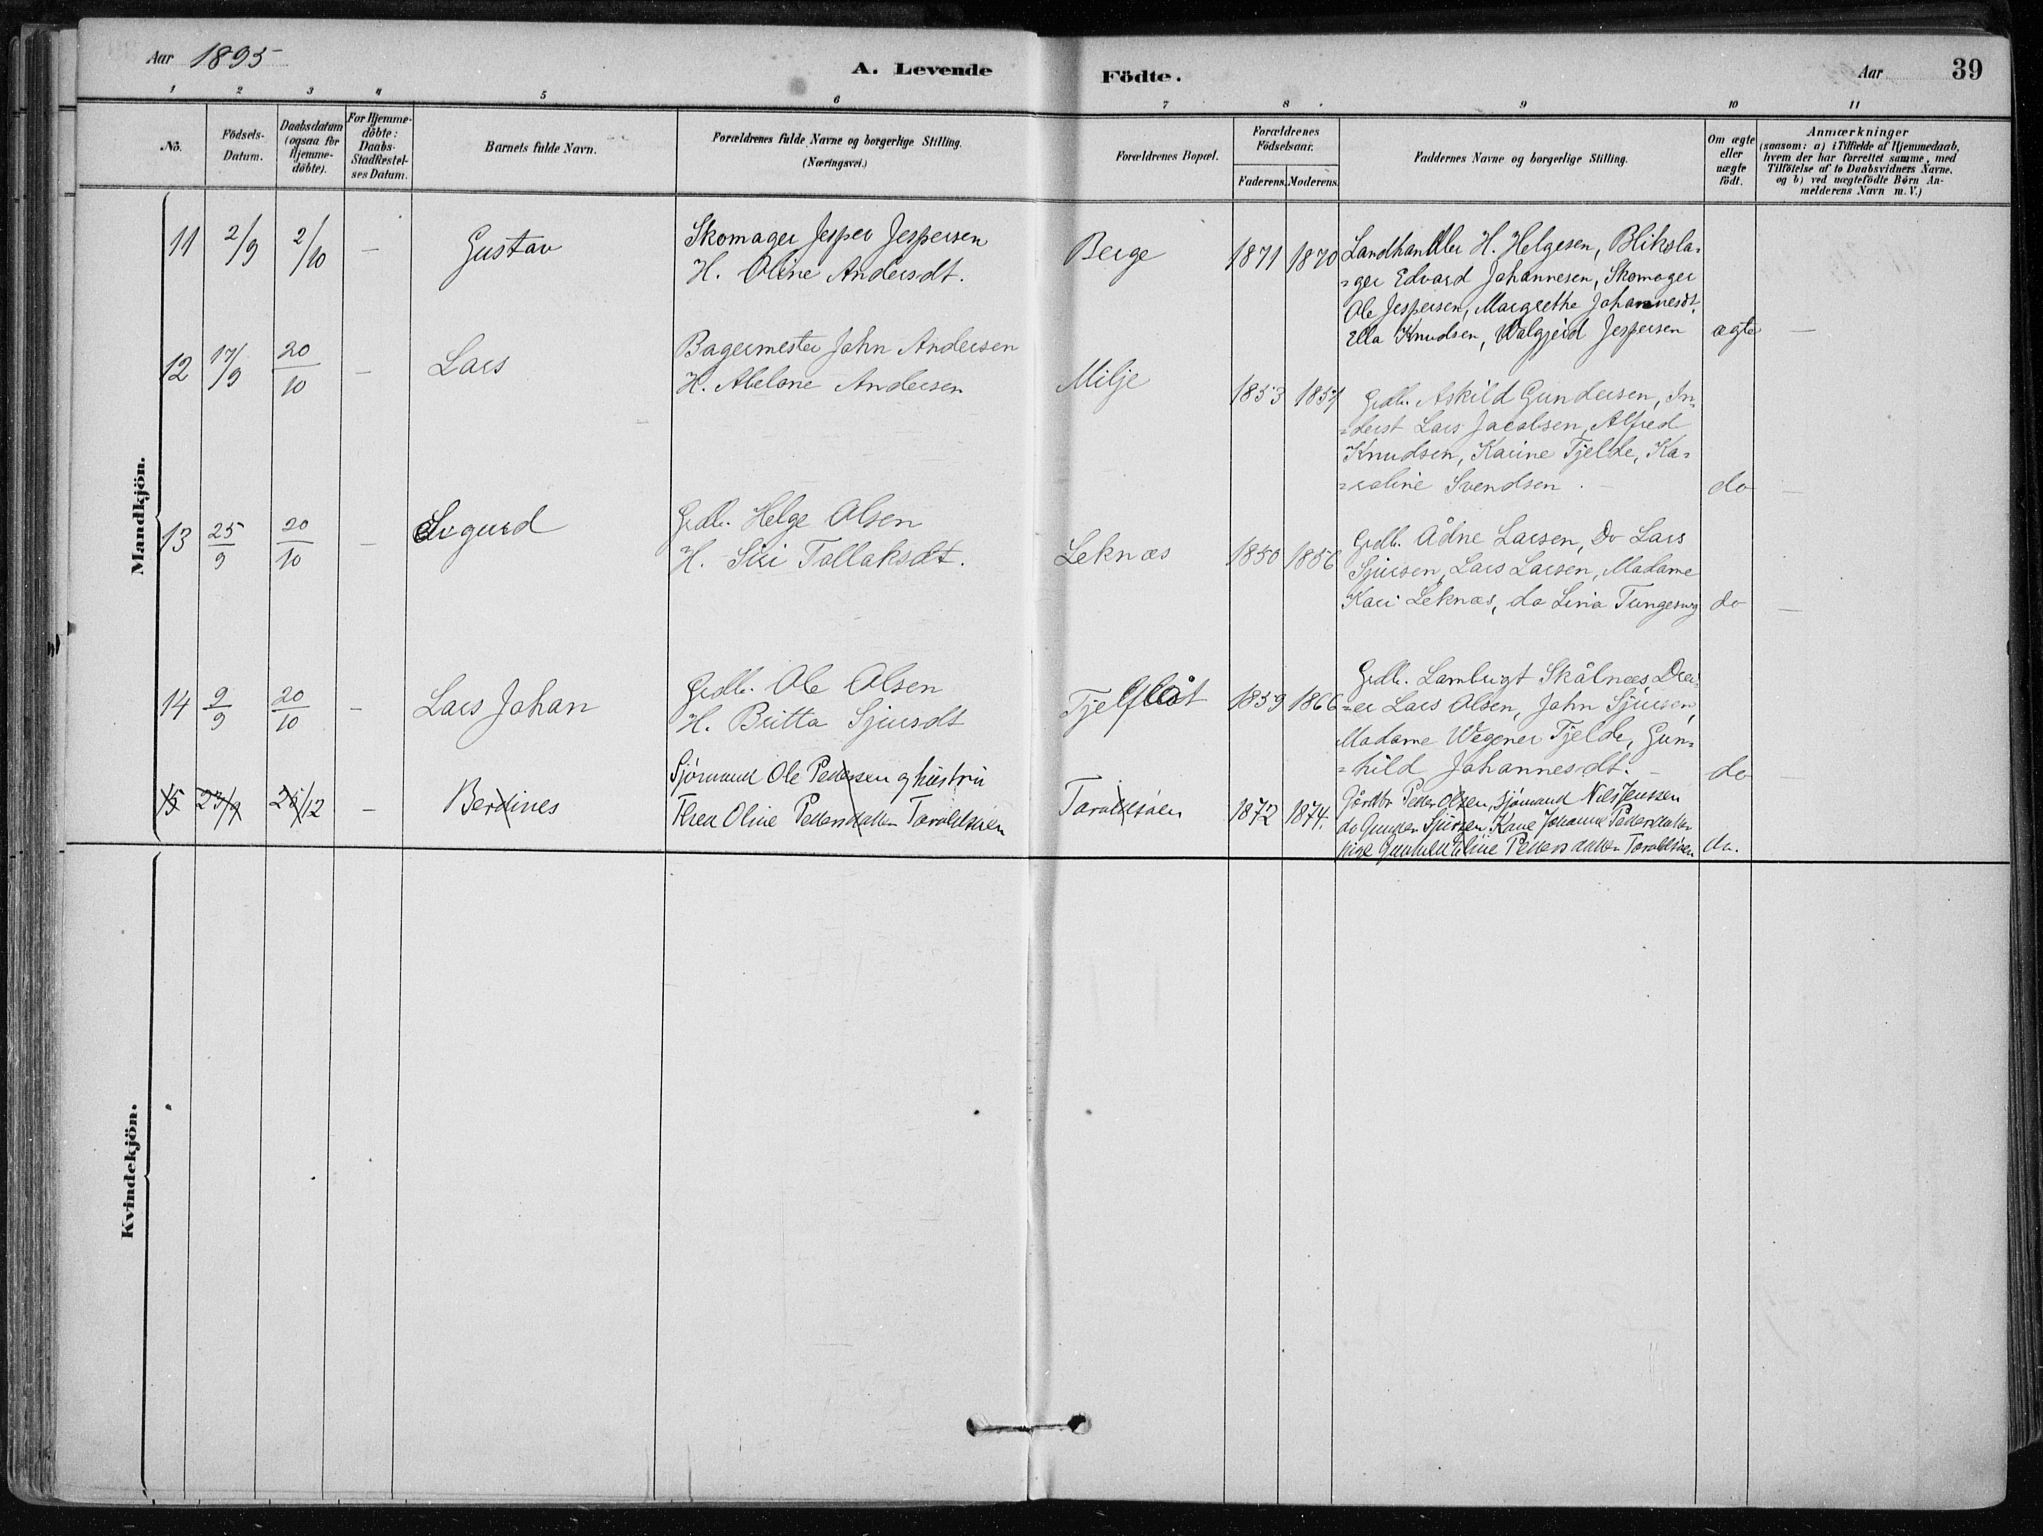 Aar 1895
A. Levende
Födte.
Aar
39
1 2 3 4 5 6 7 8 9 10 11
No.
Födsels-
Datum.
Daabsdatum
(ogsaa for
Hjemme-
döbte).
For Hjemme-
döbte:
Daabs-
Stadfæstel-
ses Datum.
Barnets fulde Navn.
Forældrenes fulde Navne og borgerlige Stilling.
(Næringsvei.)
Forældrenes Bopæl.
Forældrenes
Födselsaar.
Faderens. Moderens.
Faddernes Navne og borgerlige Stilling.
Om ægte
eller
uægte
födt.
Anmærkninger
(saasom: a) i Tilfælde af Hjemmedaab,
hvem der har forrettet samme, med
Tilföielse af to Daabsvidners Navne.
og b) ved uægtefödte Börn An-
melderens Navn m. V.)
Mandkjön.
11 2/9 2/10 — Gustav
Skomager Jesper Jespersen
H. Oline Andersdt.
Berge 1871 1870
Landhandler H. Helgesen, Bliksla-
=ger Edvard Johannesen, Skomager
Ole Jespersen, Margrethe Johannesdt.
Ella Knudsen, Walgjerd Jespersen ægte —
12 17/9 20/10 — Lars
Bagermester John Andersen
H. Abelone Andersen
Milje 1853 1857
Grdb. Askild Gundersen, In-
=derst Lars Jacobsen, Alfred
Knudsen, Karine Tjelde, Ka-
=roline Svendsen. — do —
13 25/9 20/10 — Sigurd
Grdb. Helge Olsen
H. Siri Tollaksdt.
Leknæs 1850 1856
Grdb. Ådne Larsen, Do Lars
Sjursen, Lars Larsen, Madame
Kari Leknæs, do Lina Tungesvig do —
14 9/9 20/10 — Lars Johan
Grdb. Ole Olsen
H. Britta Sjursdt
Tjelflåt 1859 1866
Grdb. Lambregt Skålnæs Dre-
=er Lars Olsen, John Sjursen,
Madame Wegener Tjelde, Gun-
=hild Johannesdt. — do —
15 23/9 26/12 — Berdines
Sjömand Ole Pedersen og hustru
Thea Oline Pettersdatter Taraldsöen
Taraldsöen 1872 1874.
Gårdbr Petter Olsen, Sjömand Nils Jenssen
do Gunder Sjursen, Kone Johanna Pedersdatter
pige Gunhild Oline Pettersdatter Taraldsöen do.
Kvindekjön.